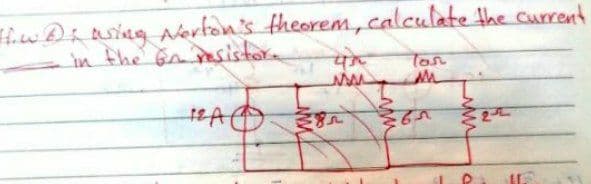 H.w ⑥: using Norton's theorem, calculate the current
in the 6Ω resistor.
4Ω 10Ω
12A 8Ω 6Ω 2Ω